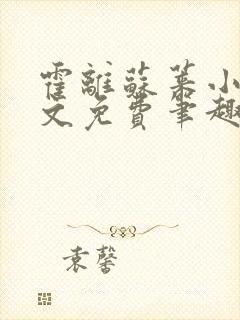 霍離蘇菉小
文免費筆趣
袁馨